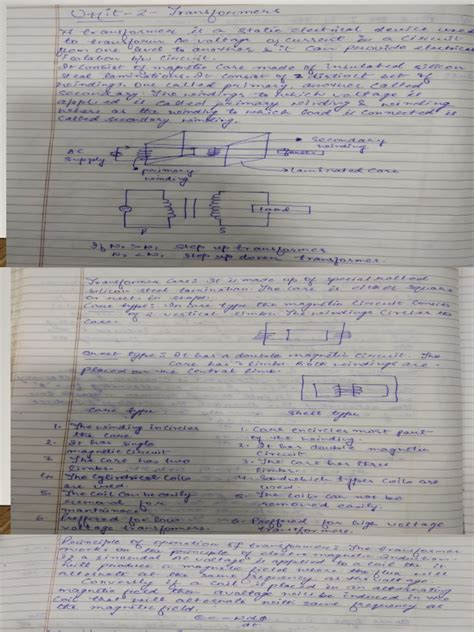 Unit-2- Transformers
A transformer is a static electrical device used
to transform AC voltage or current in a circuit
from one level to another & it can provide electrical
isolation b/w circuit.
It consist of magnetic core made of insulated silicon
steel laminations. It consist of 2 distinct set of
windings. One called primary, another called
secondary. The windings to which voltage is
applied it is called primary winding & winding
where as the winding to which load is connected is
called secondary winding.
AC
Supply
Secondary
winding
primary
winding
Laminated core
P
S
Load
If N2 > N1 Step up transformer
N2 < N1 Step down transformer.
Transformer Core: It is made up of special
silicon steel lamination. The core is either square
or rect. in shape.
Core type: In core type the magnetic circuit consists
of 2 vertical limbs. The windings circles the
core.
Shell type: It has a double magnetic circuit. The
core has 3 limbs. Both windings are
placed on the central limb.
Core type
Shell type
1. The winding incircles
the core
1. Core encircles most part
of the winding
2. It has single
magnetic circuit
2. It has double magnetic
circuit
3. The core has two
limbs.
3. The core has three
limbs.
4. The cylindrical coils
are used
4. Sandwich types coils
are used
5. The coil can be easily
removed for
maintaince
5. The coils can not be
removed easily.
6. Preffered for low
voltage transformers.
6. Preffered for high voltage
transformers.
Principle of operation of transformer: The transformer
works on the principle of electro magnetic induction.
If a sinusoidal AC voltage is applied to a coil then it
will produce a magnetic field where the flux will
alternate at the same frequency as the voltage.
Conversely if a coil is placed in an alternating
magnetic field then a voltage will be induced in the
coil that will alternate with same frequency as
the magnetic field.
e = -N dφ
dt